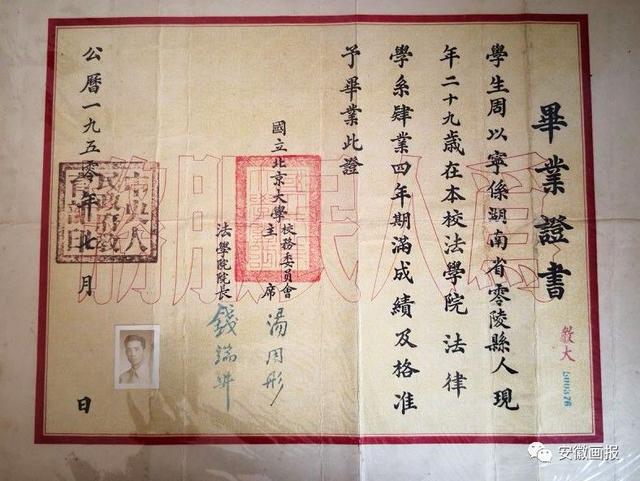 畢業證書
教大
學生周以寧係湖南省零陵縣人現
年二十九歲在本校法學院法律
學系肄業四年期滿成績及格准
予畢業此證
國立北京大學校務委員會主席 湯用彤
法學院院長 錢端升
公曆一九五零年七月 日
為人民服務
中央人民政府教育部印
安徽画报